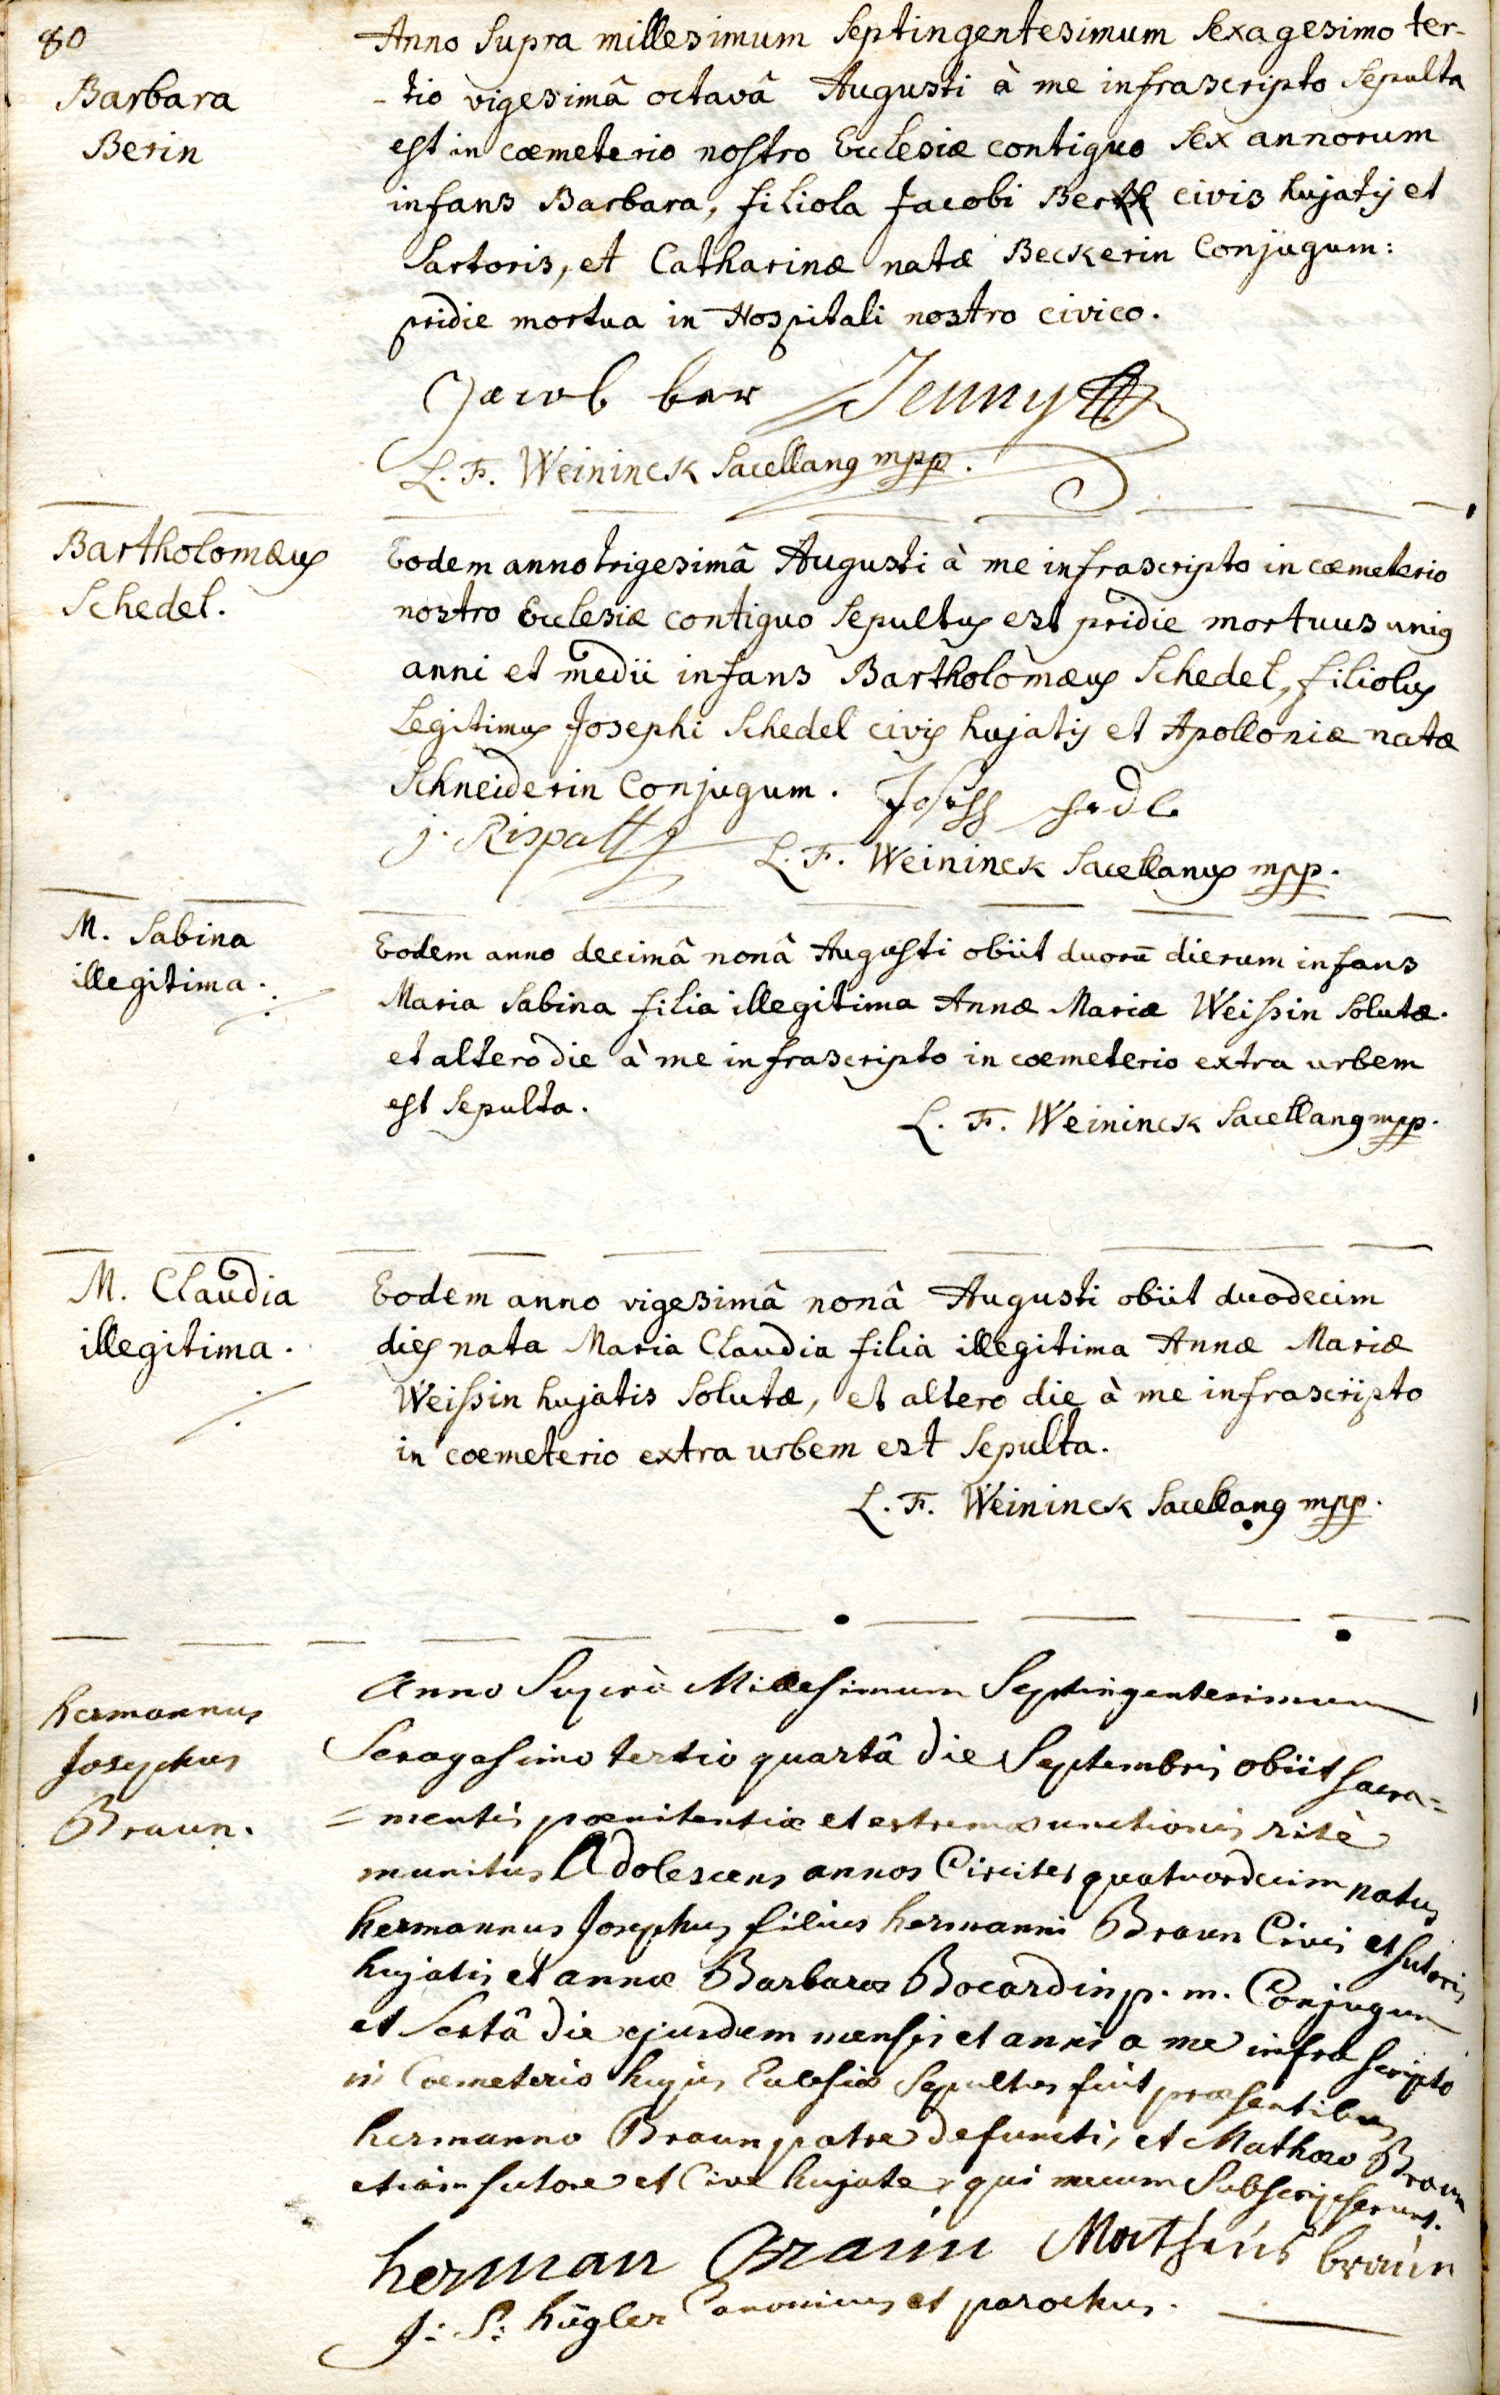 80
Anno supra millesimum septingentesimum sexagesimo ter-
Barbara
-tio vigesimâ octavâ Augusti à me infrascripto sepulta
Berin
est in cœmeterio nostro Ecclesiæ contiguo sex annorum
infans Barbara, filiola Jacobi Ber civis hujatis et
sartoris, et Catharinæ natæ Beckerin Conjugum:
pridie mortua in Hospitali nostro civico.
Jacob ber Jenny
L. F. Weininck sacellanus mpp.
Bartholomæus
Eodem anno trigesimâ Augusti à me infrascripto in cœmeterio
Schedel.
nostro Ecclesiæ contiguo sepultus est pridie mortuus unius
anni et medii infans Bartholomæus Schedel, filiolus
Legitimus Josephi Schedel civis hujatis et Apolloniæ natæ
Schneiderin Conjugum. Joseph
j. Rispall
L. F. Weininck sacellanus mpp.
M. Sabina
Eodem anno decimâ nonâ Augusti obiit duorū dierum infans
illegitima.
Maria Sabina filia illegitima Annæ Mariæ Weissin solutæ.
et altero die à me infrascripto in cœmeterio extra urbem
est sepulta.
L. F. Weininck sacellanus mpp.
M. Claudia
Eodem anno vigesimâ nonâ Augusti obiit duodecim
illegitima.
dies nata Maria Claudia filia illegitima Annæ Mariæ
Weissin hujatis solutæ, et altero die à me infrascripto
in cœmeterio extra urbem est sepulta.
L. F. Weininck sacellanus mpp.
hermannus
Josephus
Braun.
Anno Suprà Millesimum Septingentesimum
Sexagesimo tertio quartâ die Septembris obiit sacra=
=mentis pœnitentiæ et extremæ unctionis ritè
munitus Adolescens annos Circiter quatuordecim natus
hermannus Josephus filius hermanni Braun Civis et sutoris
hujatis et annæ Barbaræ Bocardin p. m. Conjugum
et Sextâ die ejusdem mensis et anni a me infra scripto
in Coemeterio hujus Eclesiæ Sepultus fuit præsentibus
hermanno Braun patre defuncti, et Mathæo Braun
etiam sutore et Cive hujate, qui mecum Subscripserunt.
herman Braun Matheus braun
J: S: hügler Canonicus et parochus.